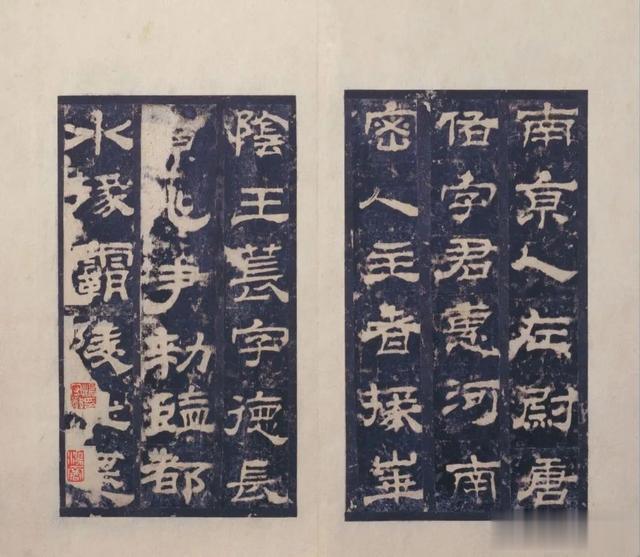 南京人左尉唐
佑字君惠河南
密人主者掾華
陰王萇字德長
兆尹勑監都
水掾霸陵